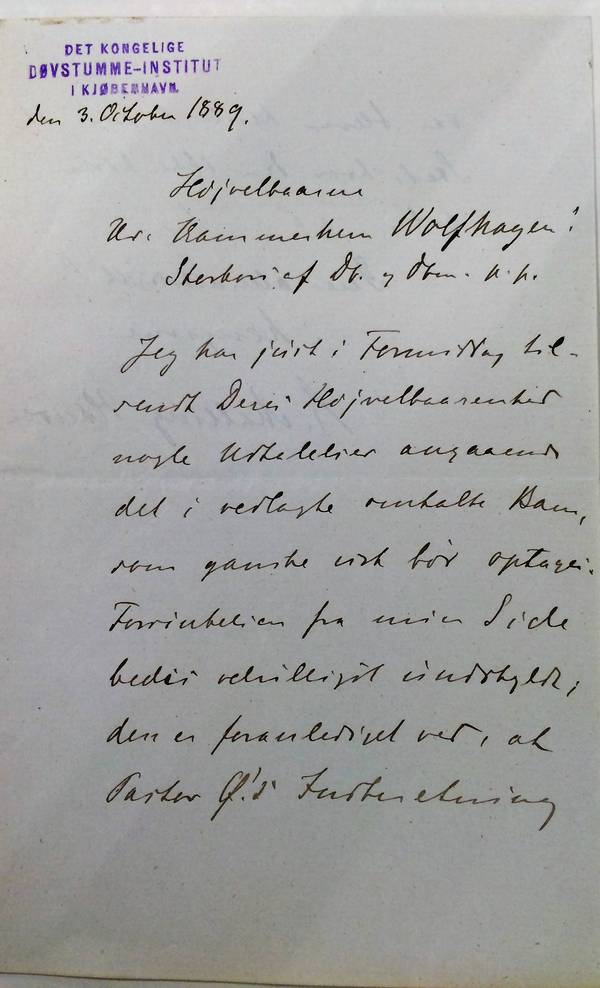 DET KONGELIGE
DØVSTUMME-INSTITUT
I KJØBENHAVN.
den 3. October 1889.
Højvelbaarne
Hr. Kammerherre Wolfhagen!
Storkors af Db. p. p.
Jeg har just i Formiddag til-
sendt Deres Højvelbaarenhed
nogle Udtalelser angaaende
det i vedlagte omtalte Barn,
som ganske vist bør optages.
Forsinkelsen fra min Side
bedes velvilligst undskyldt;
den er foranlediget ved, at
Pastor Ø.'s Indberetning